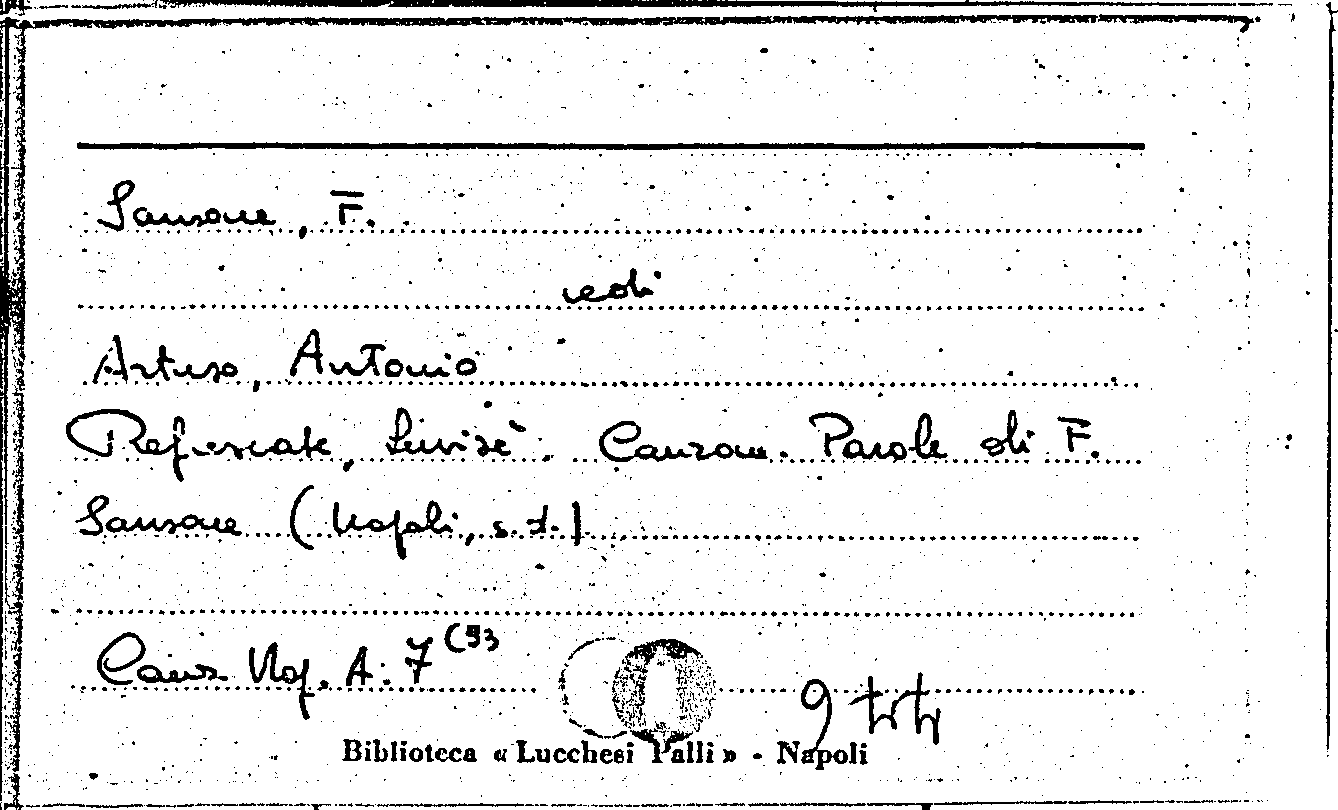 Sansone, F.
vedi
Artuso, Antonio
Refrescate, Luvisè. Canzone. Parole di F.
Sansone (Napoli, s.d.)
Canz. Nap. A: 7 (9)
Biblioteca « Lucchesi Palli » - Napoli